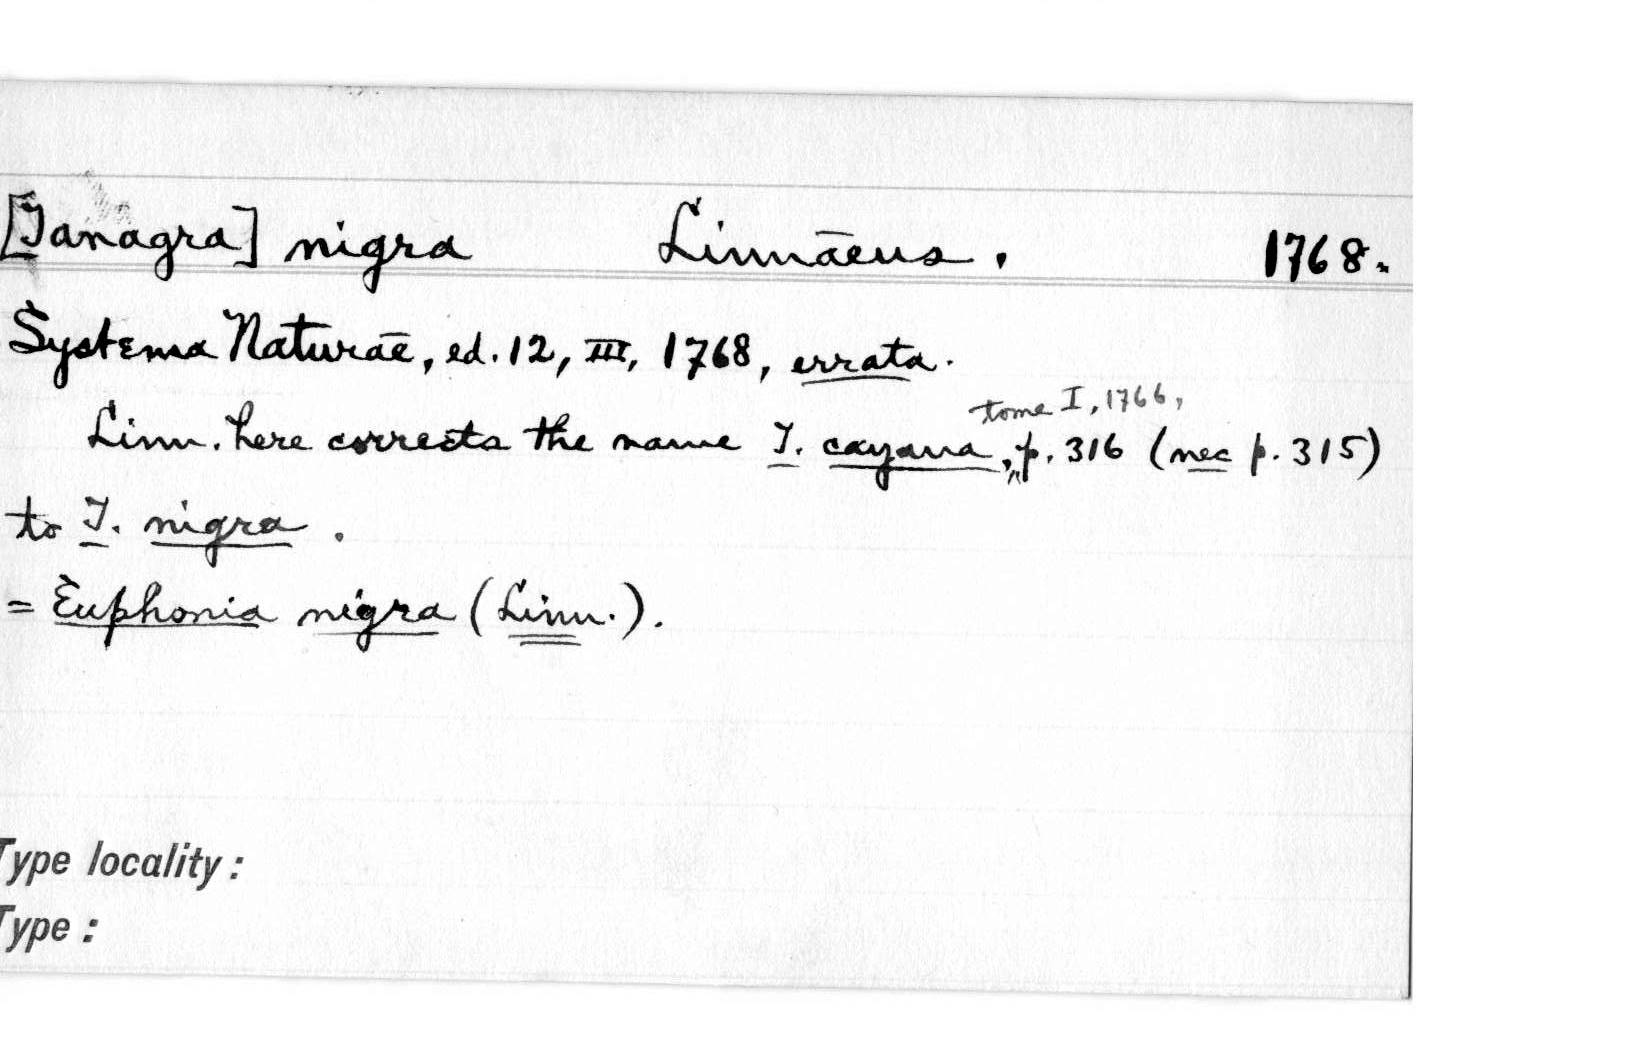 [Tanagra] nigra Linnaeus. 1768.
Systema Naturae, ed. 12, III, 1768, errata.
tome I, 1766,
Linn. here corrects the name T. cayana, p. 316 (nec p. 315)
to T. nigra.
= Euphonia nigra (Linn.).
Type locality:
Type: